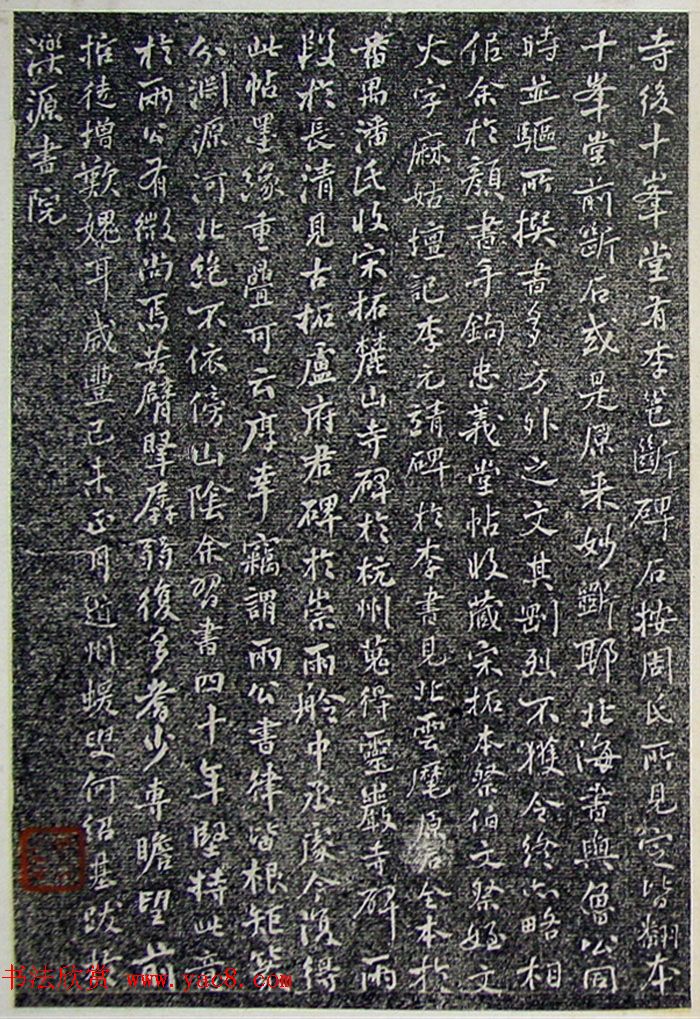 寺後十峯堂有李邕斷碑石按周氏所見定皆翻本
十峯堂前斷石或是原来妙斷耶北海書與魯公同
時並驅所撰書多方外之文其剛烈不獲令终亦略相
侣余於顏書手鉤忠義堂帖收藏宋拓本祭伯文祭姪文
大字麻姑壇記李元靖碑於李書見北雲麾原石全本於
番禺潘氏收宋拓麓山寺碑於杭州蒐得靈巖寺碑兩
段於長清見古拓盧府君碑於崇雨舲中丞處今復得
此帖墨緣重疊可云厚幸竊謂兩公書律皆根矩篆
分淵源河北絶不依傍山陰余習書四十年堅持此意
於兩公有微尚焉苦臂腕孱弱復多耆少専瞻望前
哲徒增歎媿耳咸豐己未正月道州蝯叟何紹基跋於
濼源書院
书法欣赏 www.yac8.com